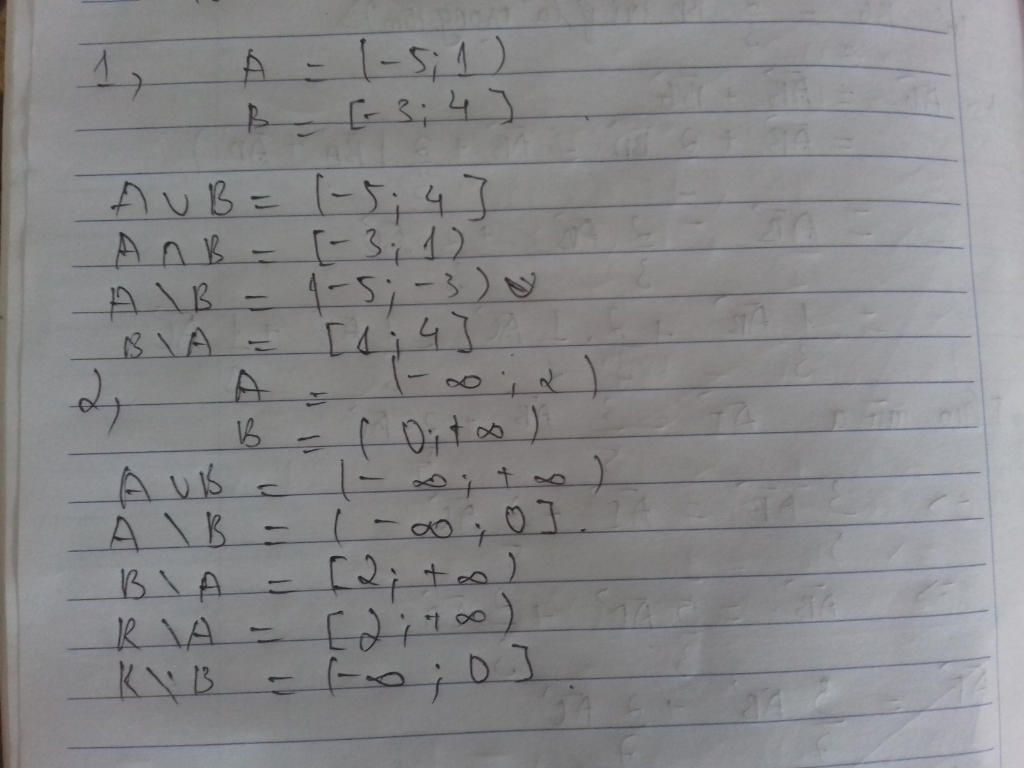 1, A = (-5; 1)
B = [-3; 4]
A ∪ B = (-5; 4]
A ∩ B = [-3; 1)
A \ B = (-5; -3)
B \ A = [1; 4]
2, A = (-∞; 2)
B = (0; +∞)
A ∪ B = (-∞; +∞)
A \ B = (-∞; 0].
B \ A = [2; +∞)
R \ A = [2; +∞)
R \ B = (-∞; 0].